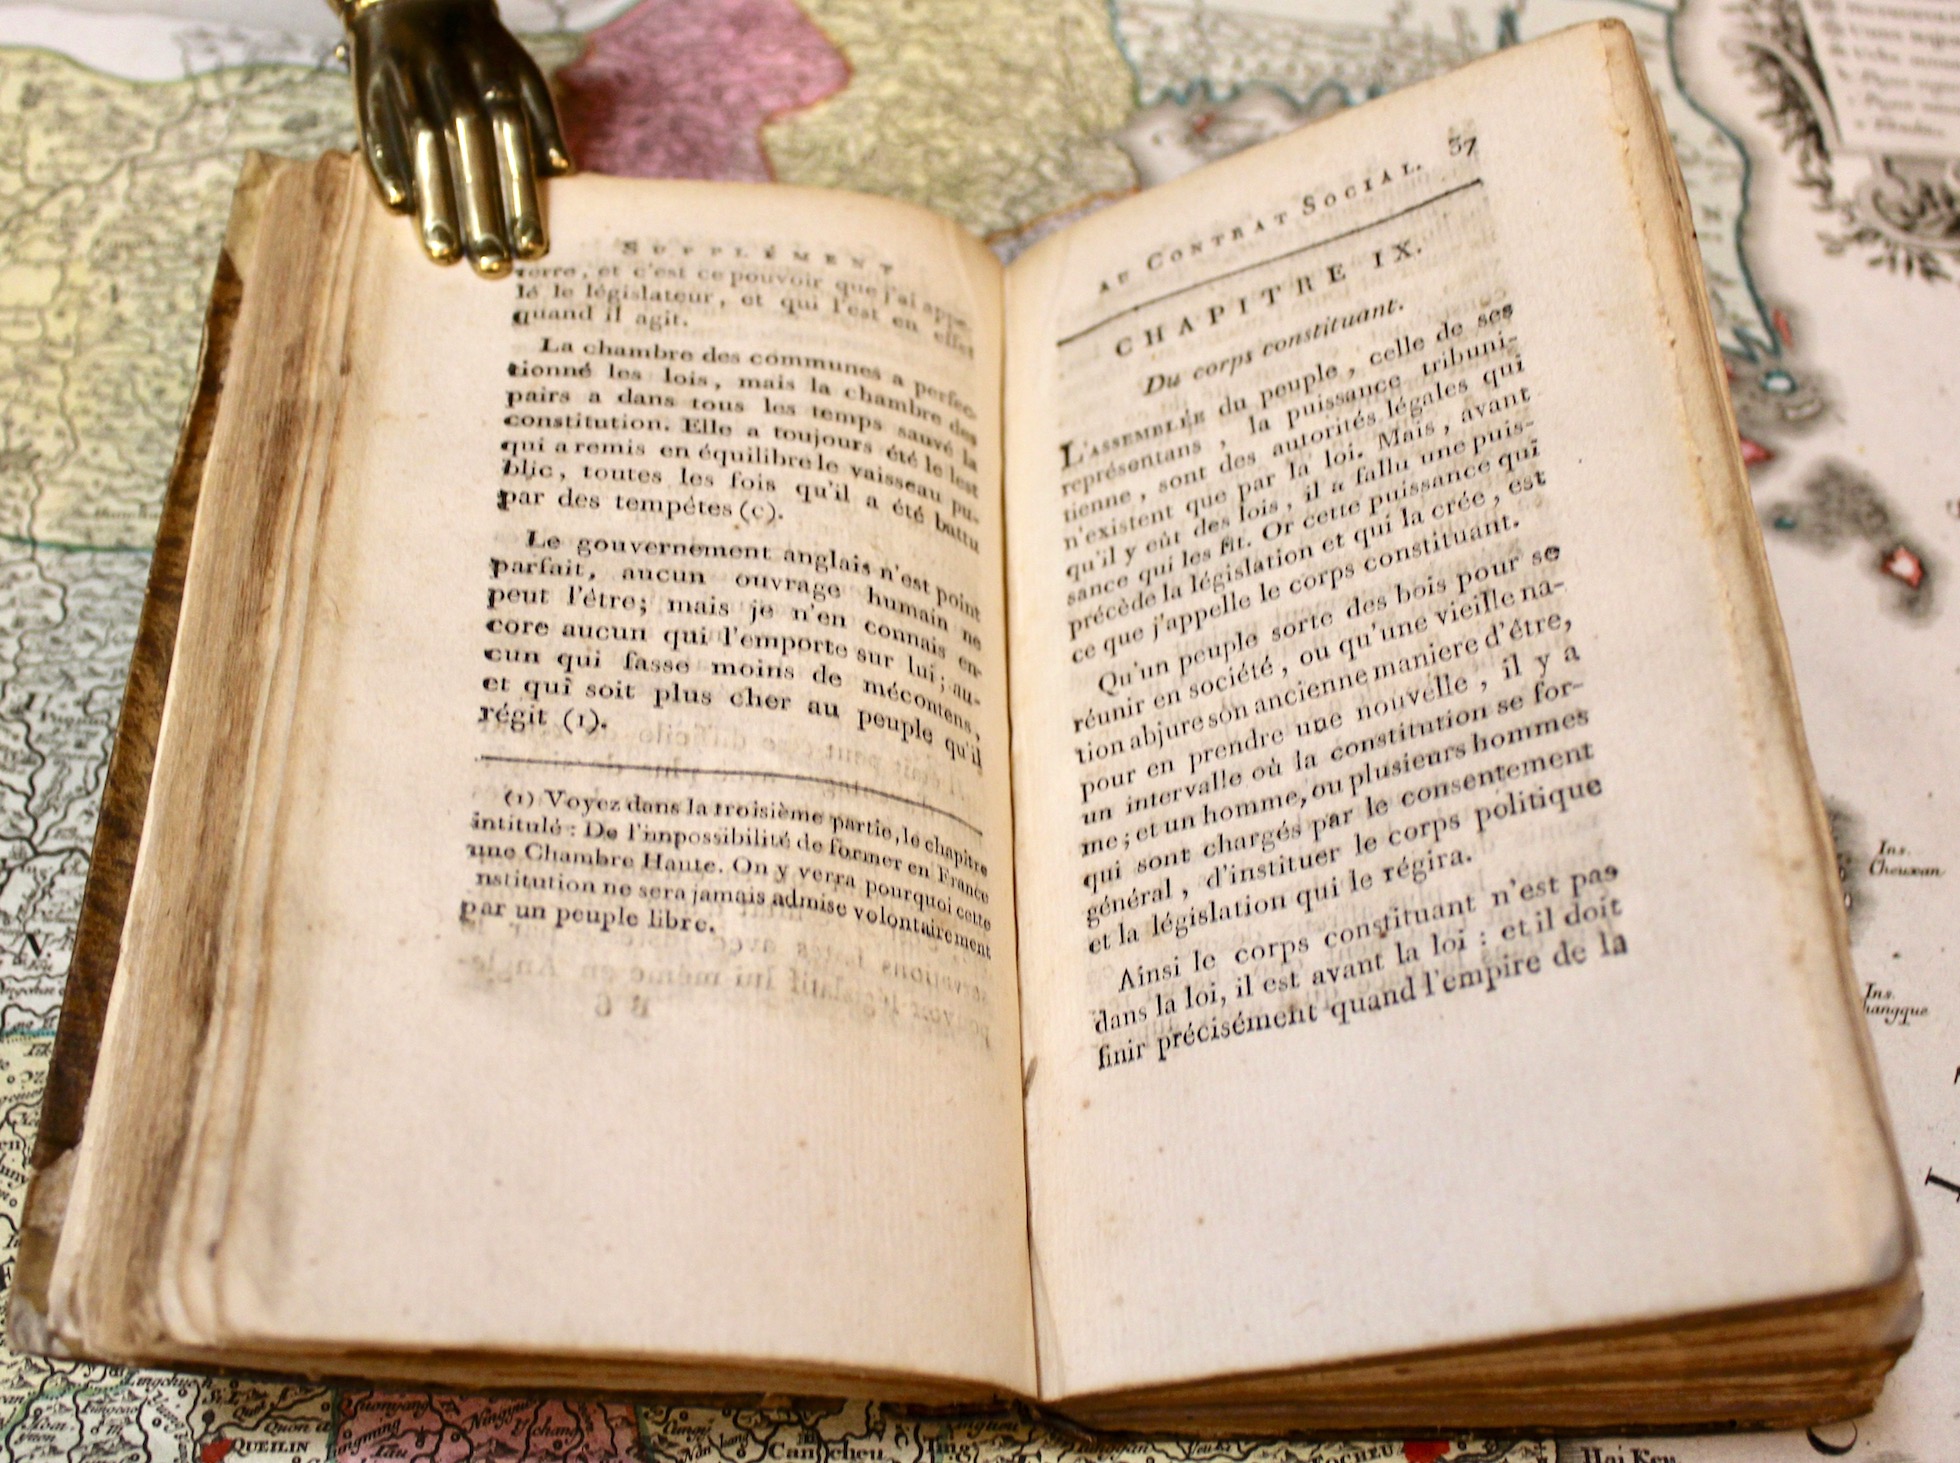 SUPPLÉMENT
terre, et c'est ce pouvoir que j'ai appe-
lé le législateur, et qui l'est en effet
quand il agit.
La chambre des communes a perfec-
tionné les lois, mais la chambre des
pairs a dans tous les temps sauvé la
constitution. Elle a toujours été le lest
qui a remis en équilibre le vaisseau pu-
blic, toutes les fois qu'il a été battu
par des tempétes (c).
Le gouvernement anglais n'est point
parfait, aucun ouvrage humain ne
peut l'être; mais je n'en connais en-
core aucun qui l'emporte sur lui; au-
cun qui fasse moins de mécontens,
et qui soit plus cher au peuple qu'il
régit (1).
(1) Voyez dans la troisième partie, le chapitre
intitulé : De l'impossibilité de former en France
une Chambre Haute. On y verra pourquoi cette
nstitution ne sera jamais admise volontairement
par un peuple libre.
AU CONTRAT SOCIAL. 37
CHAPITRE IX.
Du corps constituant.
L'ASSEMBLÉE du peuple, celle de ses
représentans, la puissance tribuni-
tienne, sont des autorités légales qui
n'existent que par la loi. Mais, avant
qu'il y eût des lois, il a fallu une puis-
sance qui les fit. Or cette puissance qui
précède la législation et qui la crée, est
ce que j'appelle le corps constituant.
Qu'un peuple sorte des bois pour se
réunir en société, ou qu'une vieille na-
tion abjure son ancienne maniere d'être,
pour en prendre une nouvelle, il y a
un intervalle où la constitution se for-
me; et un homme, ou plusieurs hommes
qui sont chargés par le consentement
général, d'instituer le corps politique
et la législation qui le régira.
Ainsi le corps constituant n'est pas
dans la loi, il est avant la loi : et il doit
finir précisément quand l'empire de la
Ins.
Cheuxan
Ins.
N.
QUEILIN
Hai Keu